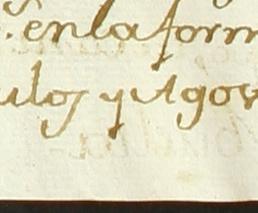 en la form
ulos y vigor